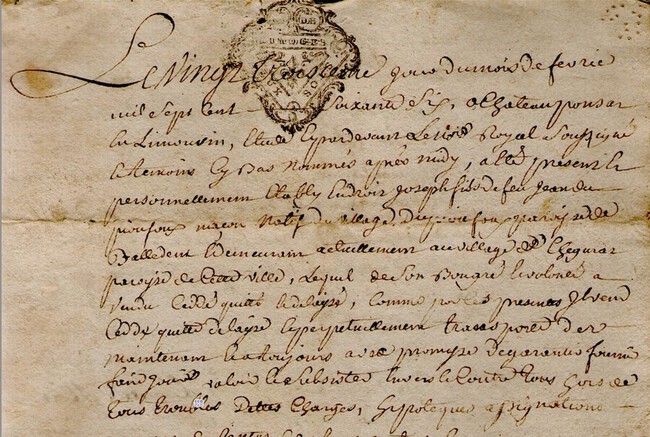 Le vingt troisieme jour du mois de fevrie
mil sept cent soixante six, a Chateauponsac
en Limousin, Etude et pardevant le no.re Royal Soussigné
et temoins cy bas nommés apres midy, a été présent et
personnellement Etably en droit joseph fils de feu jean du
masson Natif du village du paroisse de
Balledent et demeurant actuellement au village de
paroisse de Cette ville, Lequel de Son Bongré et volonté a
vendu Ceddé quitté et delaissé, Comme par les presentes Il vend
Cedde quitte delaisse et perpetuellement transporte des
maintenant et a toujours avec promesse de garantir fournir
faire jouir valoir et subsister Envers et Contre tous hors de
tous troubles Dettes Charges, hypoteques assignations